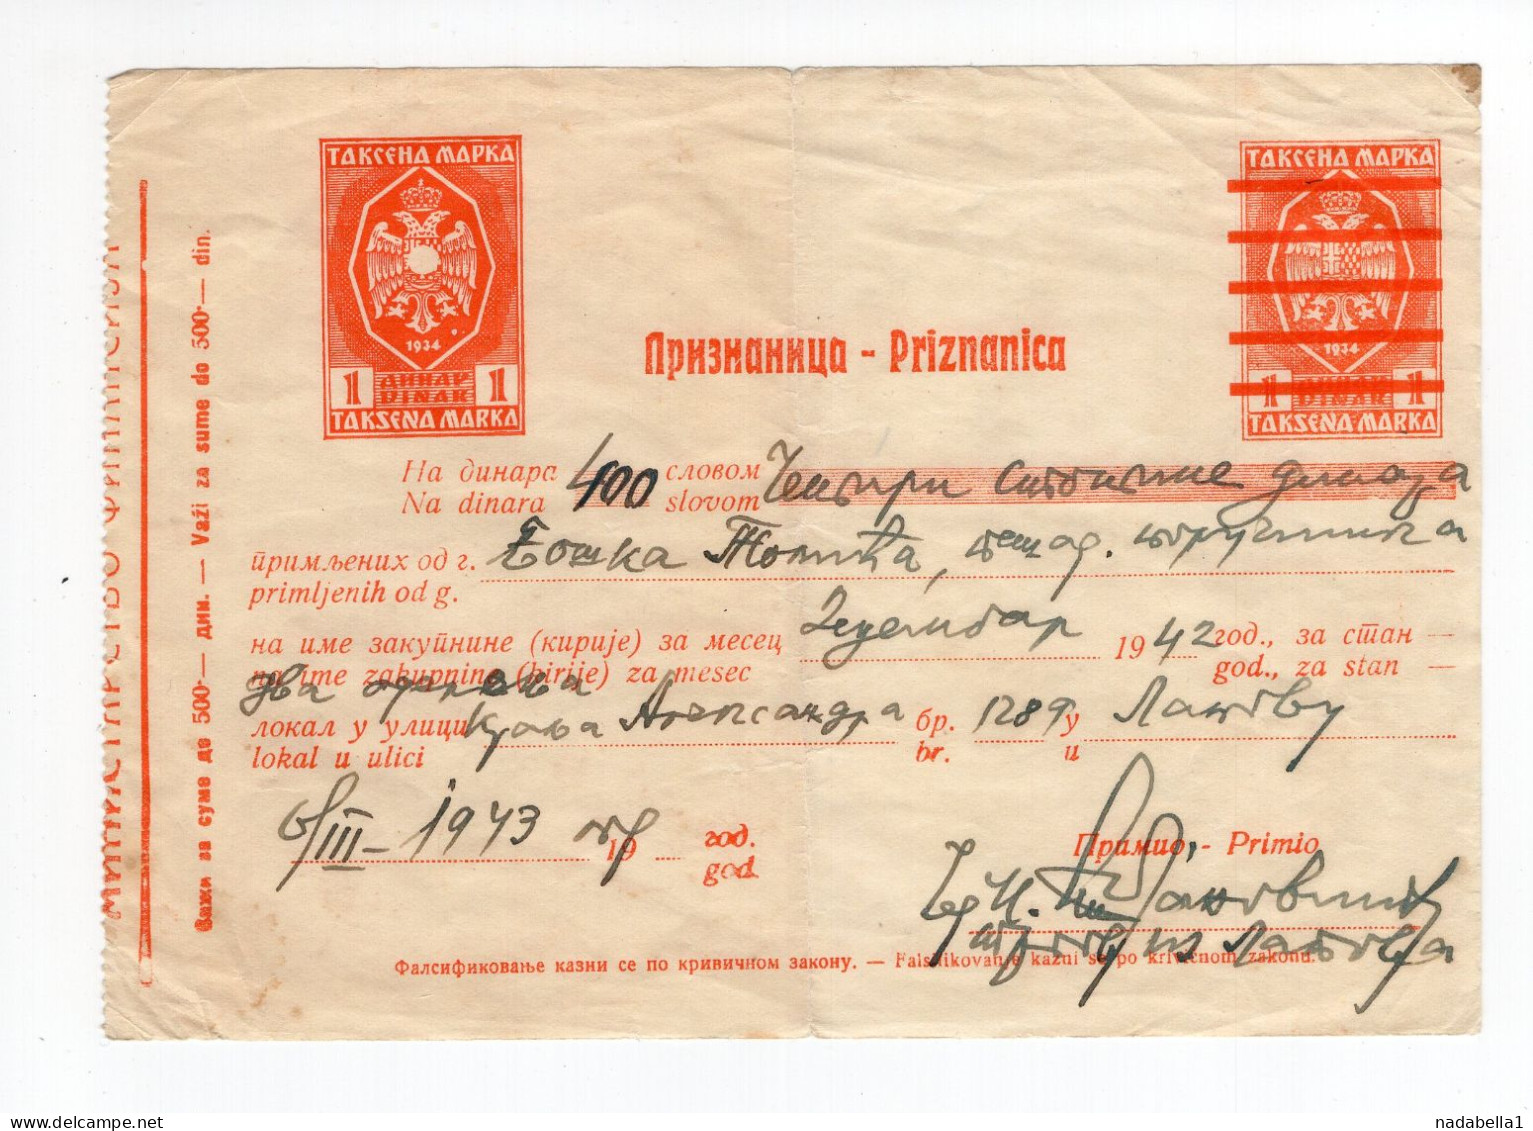 ТАКСЕНА МАРКА
1934
1 ДИНАР 1
DINAR
TAKSENA MARKA
ТАКСЕНА МАРКА
1934
1 ДИНАР 1
DINAR
TAKSENA MARKA
Признаница - Priznanica
МИНИСТАРСТВО ФИНАНСИЈА
Важи за суме до 500·— дин. — Važi za sume do 500·— din.
На динара 400 словом Четири стотине динара
Na dinara slovom
примљених од г. Бошка
primljenih od g.
на име закупнине (кирије) за месец Децембар 1942 год., за стан —
na ime zakupnine (kirije) za mesec god., za stan —
два
локал у улици Краља Александра бр. 1289 у
lokal u ulici br. u
6/III – 1943 19 год.
god.
Примио, - Primio
из
Фалсификовање казни се по кривичном закону. — Falsifikovanje kazni se po krivičnom zakonu.
nadabella1